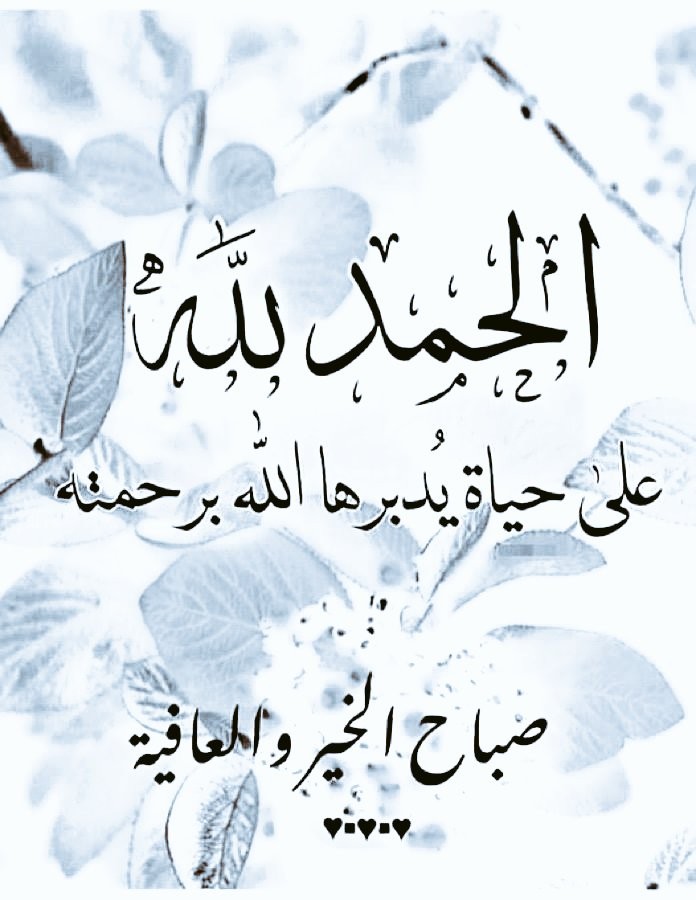 الحمد لله
على حياة يُدبرها الله برحمته
صباح الخير والعافية
♥▪♥▪♥